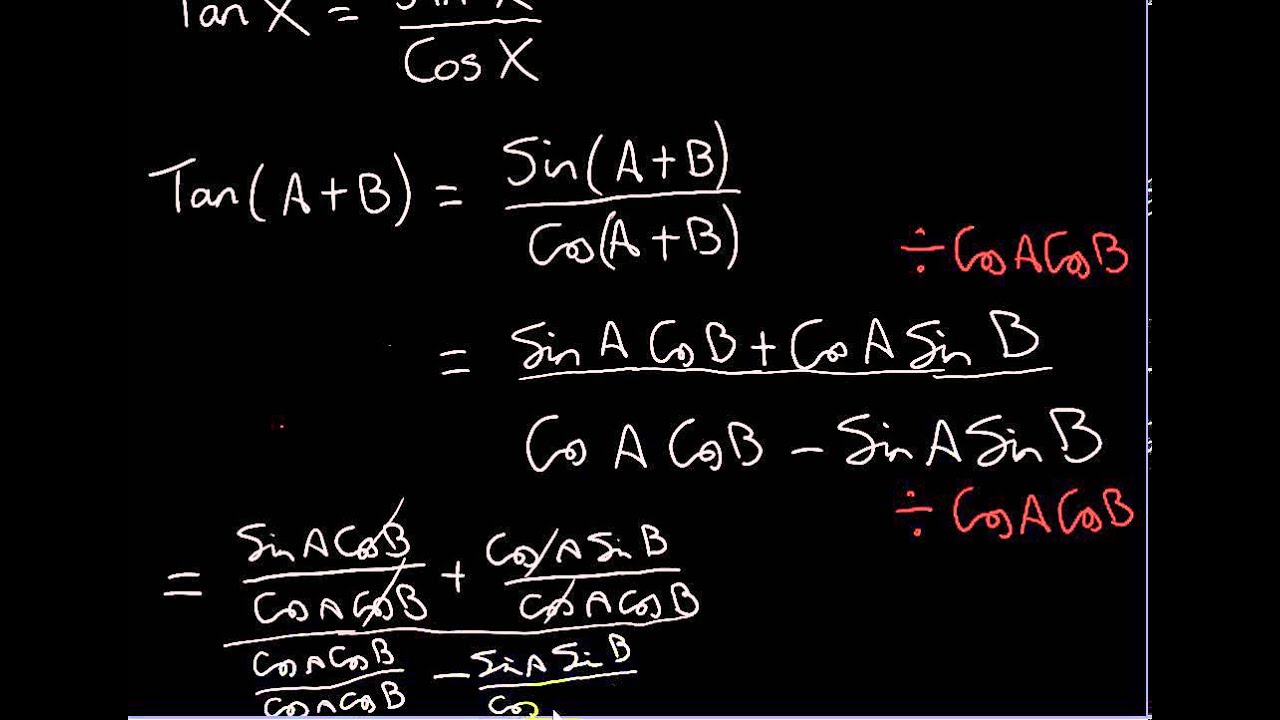 Tan X = Sin X
Cos X
Tan(A+B) = Sin(A+B)
Cos(A+B)
÷ Cos A Cos B
= Sin A Cos B + Cos A Sin B
Cos A Cos B - Sin A Sin B
÷ Cos A Cos B
= Sin A Cos B + Cos A Sin B
Cos A Cos B Cos A Cos B
Cos A Cos B - Sin A Sin B
Cos A Cos B Co